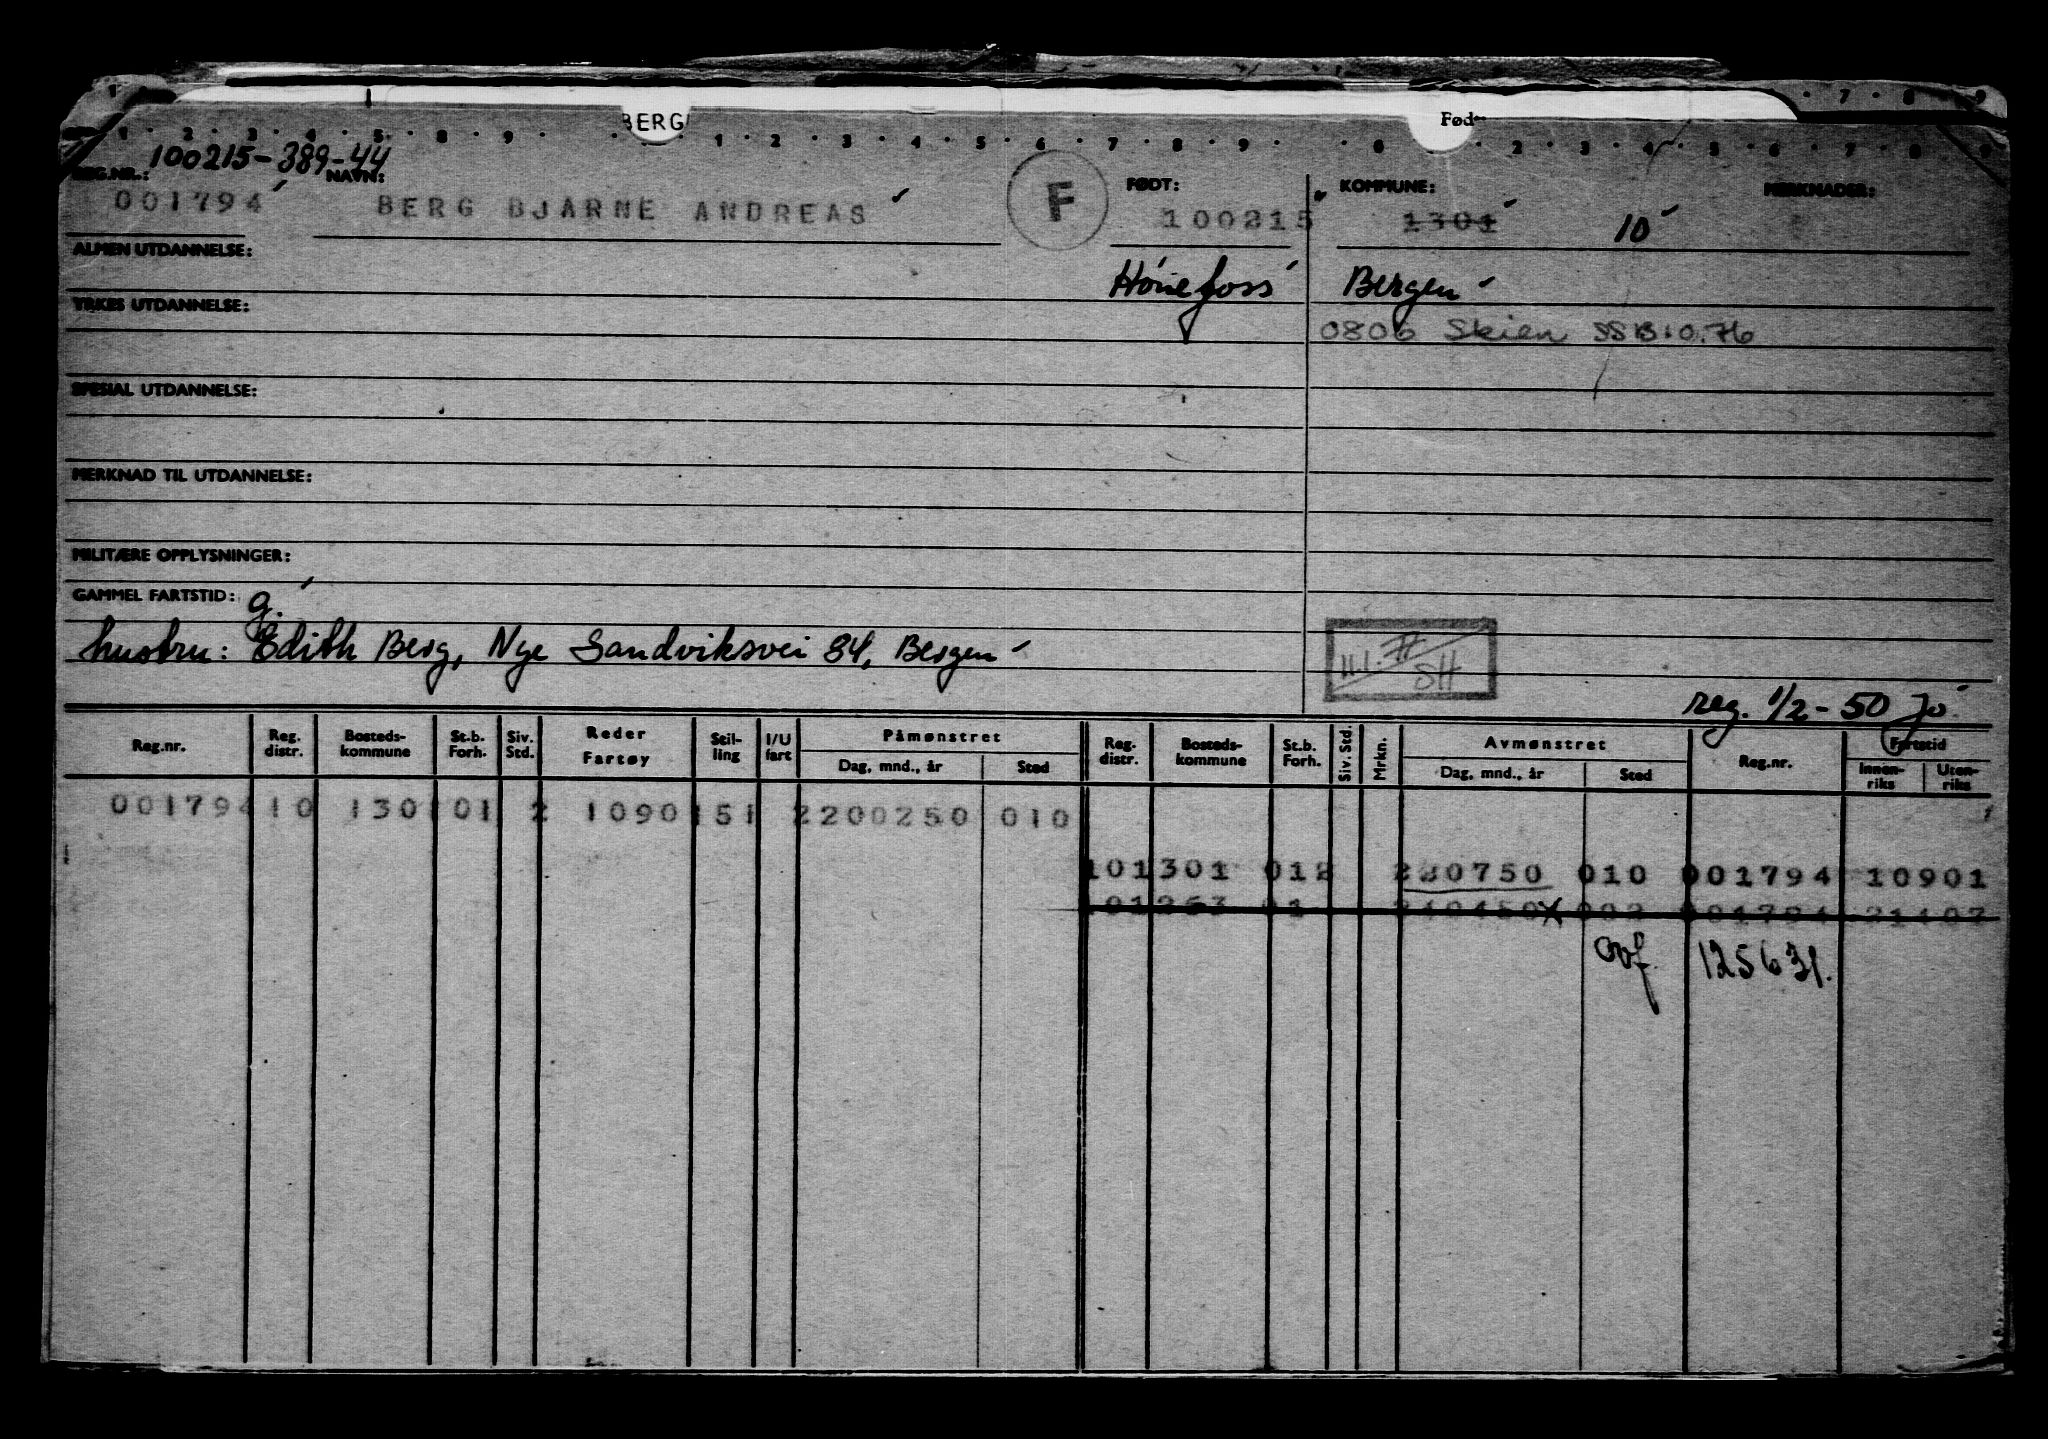 BERG
Fød
100215-389-44
REG.NR.: NAVN: FØDT: KOMMUNE: MERKNADER:
001794 BERG BJARNE ANDREAS F 100215 1301 10
ALMEN UTDANNELSE:
Hønefoss Bergen
YRKES UTDANNELSE:
0806 Skien SSB.10.76
SPESIAL UTDANNELSE:
MERKNAD TIL UTDANNELSE:
MILITÆRE OPPLYSNINGER:
GAMMEL FARTSTID: g.
hustru: Edith Berg, Nye Sandviksvei 84, Bergen
11.1.77 SH
reg. 1/2-50 Jo
Reg.nr. Reg. distr. Bosteds-kommune St.b. Forh. Siv. Std. Reder Fartøy Stil-ling I/U fart Påmønstret Dag, mnd., år Sted Reg. distr. Bosteds-kommune St.b. Forh. Siv. Std. Mrkn. Avmønstret Dag, mnd., år Sted Reg.nr. Fartstid Innen-riks Uten-riks
001794 10 130 01 2 1090 151 2200250 010
101301 012 280750 010 001794 10901
ovf. 125631.